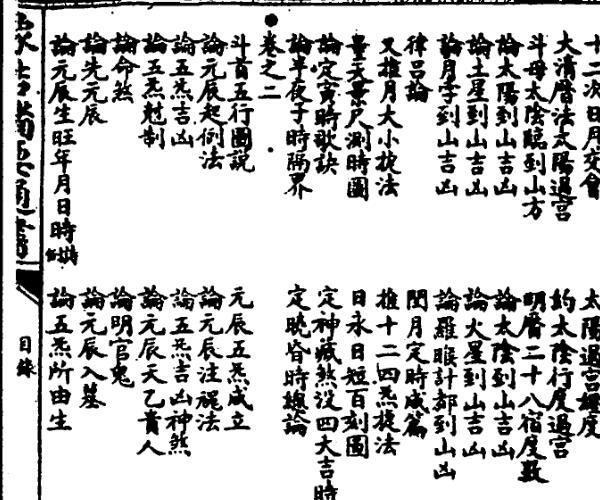 十二次日月交會
太陽過宮經度
大清曆法太陽過宮
約太陰行度過宮
斗母太陰臨到山方
明曆二十八宿度數
論太陽到山吉凶
論太陰到山吉凶
論土星到山吉凶
論火星到山吉凶
論月孛到山吉凶
論羅睺計都到山凶
律呂論
閏月定時成篇
又推月大小捷法
推十二四炁捷法
量天景尺測時圖
日永日短百刻圖
論定寅時歌訣
定神藏煞没四大吉時
論半夜子時隔界
定曉昏時總論
卷之二
斗首五行圖説
元辰五炁成立
論元辰起例法
論元辰注禄法
論五炁吉凶
論五炁吉凶神煞
論五炁尅制
論元辰天乙貴人
論命煞
論明官鬼
論先元辰
論元辰入墓
論元辰生旺年月日時
論五炁所由生
通書
目錄